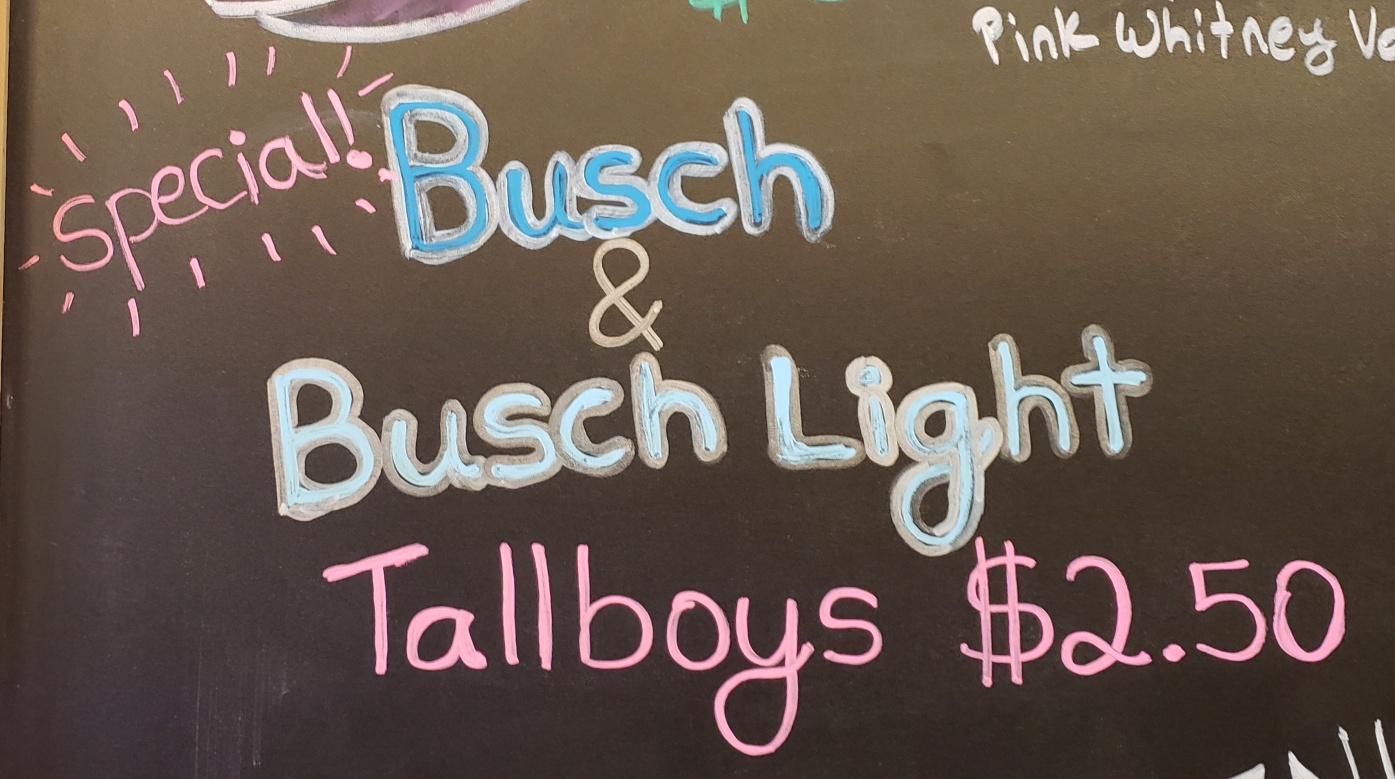 Pink Whitney
Special!
Busch
&
Busch Light
Tallboys $2.50